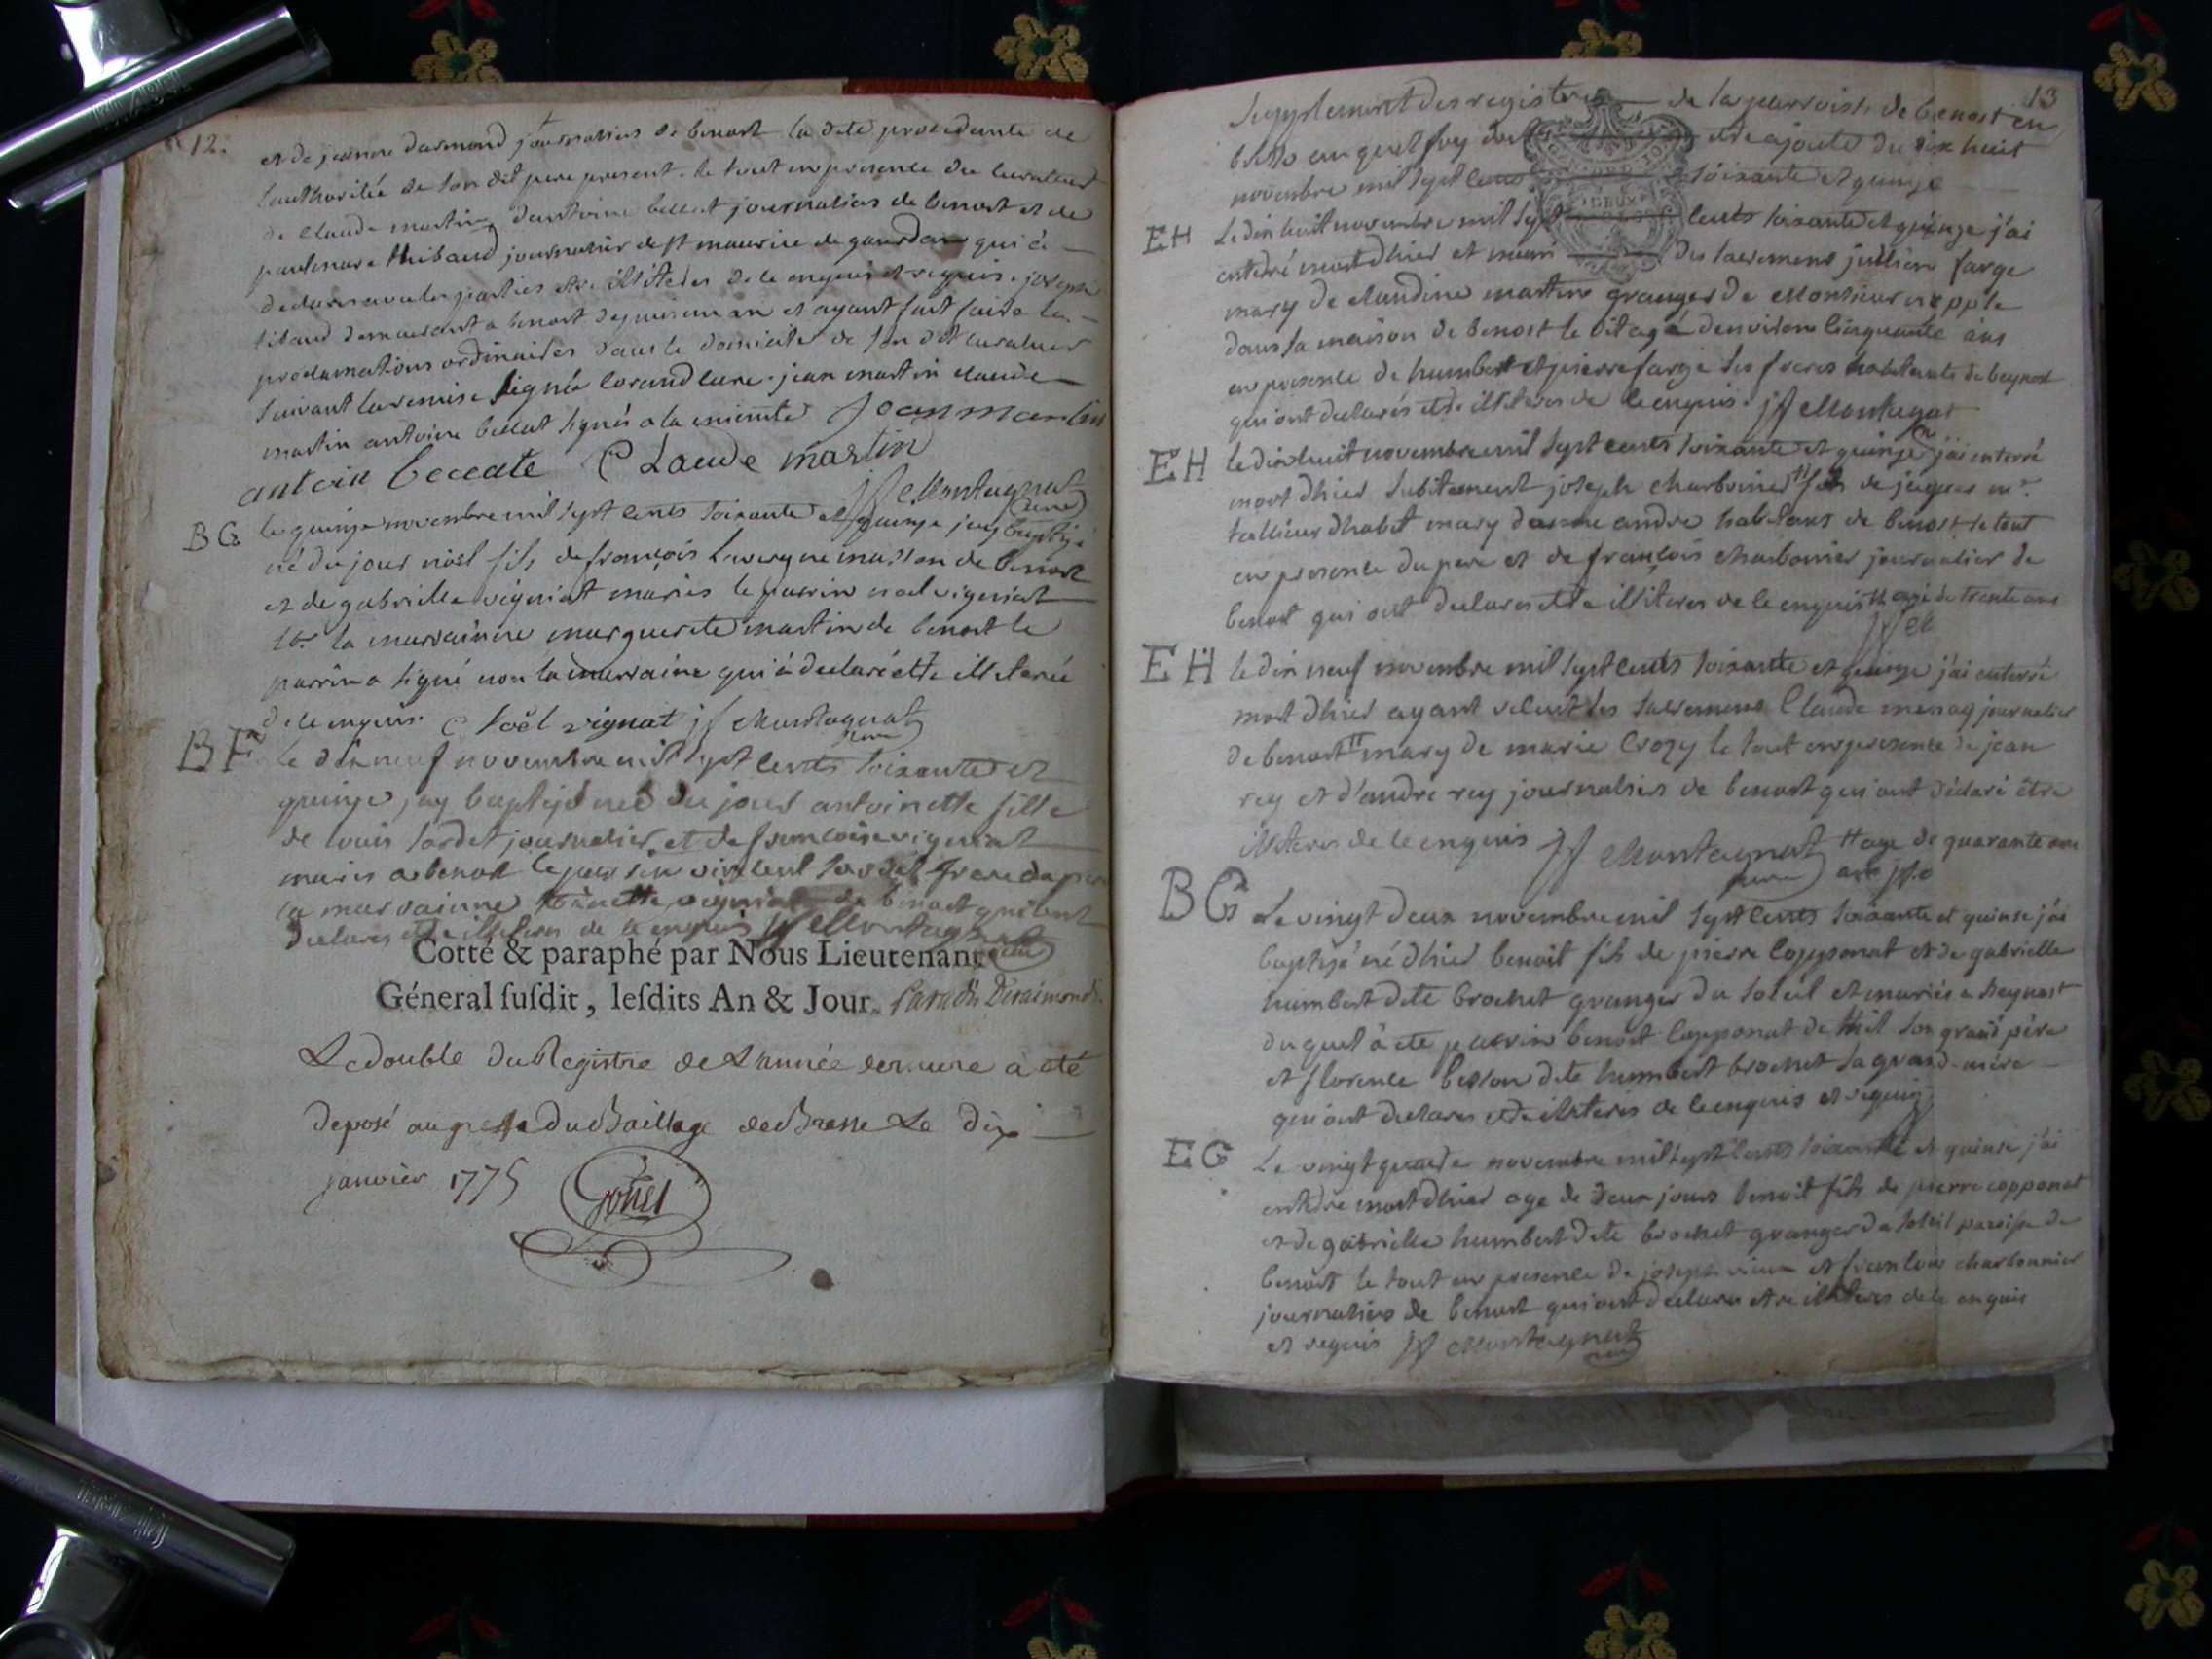 12.
et de jeanne dasmond journaliers de benost la dete procedante de
l'authoritée de son dit pere present. le tout en presence du curateur
de claude martin, dantoine beccat journaliers de benost et de
thibaud journalier de st maurice de gourdan qui a
declaré avec les parties etre illiteres de ce enquis et requis. joseph
tibaud demeurant a benost depuis un an et ayant fait faire les
proclamations ordinaires dans le domicile de son dit curateur
suivant la remise signée lorand curé. jean martin claude
martin antoine beccat signés a la minute Jean martin
antoin beccate Claude martin
jf Montagnat curé
BG le quinze novembre mil sept cents soixante et quinze jay baptizé
né du jour noël fils de françois lavergne masson de benost
et de gabrielle vigniat mariés le parrin noel vigniat
la marrainne marguerite martin de benost le
parrin a signé non la marraine qui à declaré etre illiterée
de ce enquis. Noël vignat jf Montagnat curé
BF Le dix neuf novembre mil sept cents soixante et
quinze jay baptizé née du jour antoinette fille
de louis sardet journalier et de francoise vigniat
mariés a benost le parrin vincent sardet frere du pere
la marrainne vigniat de benost qui ont
declarés etre illiteres de ce enquis jf Montagnat curé
Cotté & paraphé par Nous Lieutenant
Géneral susdit, lesdits An & Jour.
Le double du Registre de L'année derniere à eté
deposé au greffe du Bailliage de Bresse Le dix
janvier 1775
13
Supplement des registres de la parroisse de benost en
bresse auquel etre ajouté du dix huit
novembre mil sept cents soixante et quinze
EH Le dix huit novembre mil sept cents soixante et quinze j'ai
enterré mort d'hier et muni des sacremens jullien farge
mary de claudine martin granger de Monsieur
dans sa maison de benost le dit agé d'environ cinquante ans
en presence de humbert et pierre farge ses freres habitants de beynost
qui ont declarés etre illiteres de ce enquis. jf Montagnat
EH le dix huit novembre mil sept cents soixante et quinze j'ai enterré
mort d'hier subitement joseph charbonier fils de jaques mr.
tallieur d'habit mary danne andre habitant de benost le tout
en presence du pere et de françois charbonier journalier de
benost qui ont declarés etre illiteres de ce enquis agé de trente ans
EH le dix neuf novembre mil sept cents soixante et quinze j'ai enterré
mort d'hier ayant recu tes les sacremens Claude menay journalier
de benost mary de marie Crozy le tout en presence de jean
rey et d'andre rey journaliers de benost qui ont déclaré être
illiteres de ce enquis jf Montagnat curé age de quarante
ans
BG Le vingt deux novembre mil sept cents soixante et quinse j'ai
baptizé né d'hier benoit fils de pierre Copponat et de gabrielle
humbert dete brochet granger du soleil et mariés a Beynost
duquel à eté parrin benoit Copponat de thil son grand père
et florence besson dete humbert brochet sa grand-mère
qui ont declarés etre illiterés de ce enquis et requis
EG Le vingt quatre novembre mil sept cents soixante et quinse j'ai
enterré mort d'hier age de deux jours benoit fils de pierre copponat
et de gabrielle humbert dete brochet granger du soleil paroisse de
benost le tout en presence de joseph et francois charbonnier
journaliers de benost qui ont declarés etre illiteres de ce enquis
et requis jf Montagnat